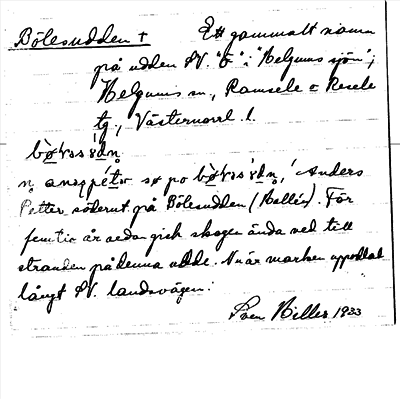 Bölesudden † Ett gammalt namn
på udden N. "6" i "Helgums sjön";
Helgums sn, Ramsele o Resele
tg, Västernorrl. l.
Anders
Petter söderut på Bölesudden (Hellén). För
femtio år sedan gick skogen ända ned till
stranden på denna udde. Nu är marken uppodlad
långt N. landsvägen.
Sven Hiller 1933